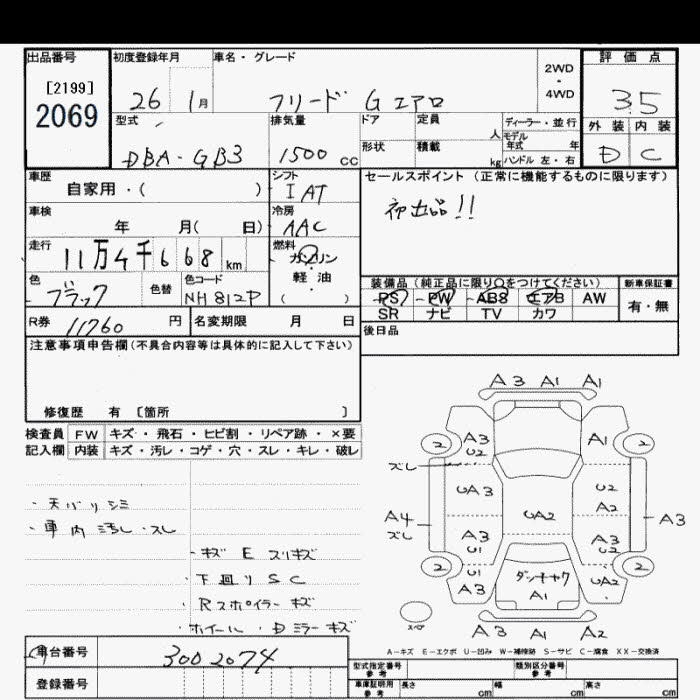 出品番号
[2199]
2069
初度登録年月
26 1月
車名・グレード
フリード Gエアロ
2WD
・
4WD
評価点
3.5
外装 内装
D C
型式
DBA-GB3
排気量
1500 CC
ドア
定員
人
形状
積載
kg
ディーラー・並行
モデル年式 年
ハンドル 左・右
車歴
自家用・( )
シフト
IAT
セールスポイント (正常に機能するものに限ります)
初出品!!
車検
年 月( 日)
冷房
AAC
走行
11万4千668km
燃料
ガソリン
軽・油
( )
色
ブラック
色替
色コード
NH812P
装備品 (純正品に限り○をつけてください)
PS PW ABS エアB AW
SR ナビ TV カワ
新車保証書
有・無
R券 11760 円
名変期限 月 日
後日品
注意事項申告欄(不具合内容等は具体的に記入して下さい)
修復歴 有 〔箇所 〕
検査員 FW キズ・飛石・ヒビ割・リペア跡・×要
記入欄 内装 キズ・汚レ・コゲ・穴・スレ・キレ・破レ
・天バリシミ
・車内汚レ・スレ
・キズ E スリキズ
・下廻りSC
・Rスポイラーキズ
・ホイール・Dミラーキズ
A3 A1 A1
2 A3 U2 A1 2
ズレ
UA3 U2
A2
A4 UA2 A3
ズレ
A3 U1 A3 U2
2 U1 A3 ダンキャク A1 UA2 2
スペア
A3 A1 A2
A-キズ E-エクボ U-凹み W-補修跡 S-サビ C-腐食 XX-交換済
車台番号 3002074
登録番号
型式指定番号
参考
類別区分番号
参考
車庫証明用
参考
長さ cm 幅 cm 高さ cm